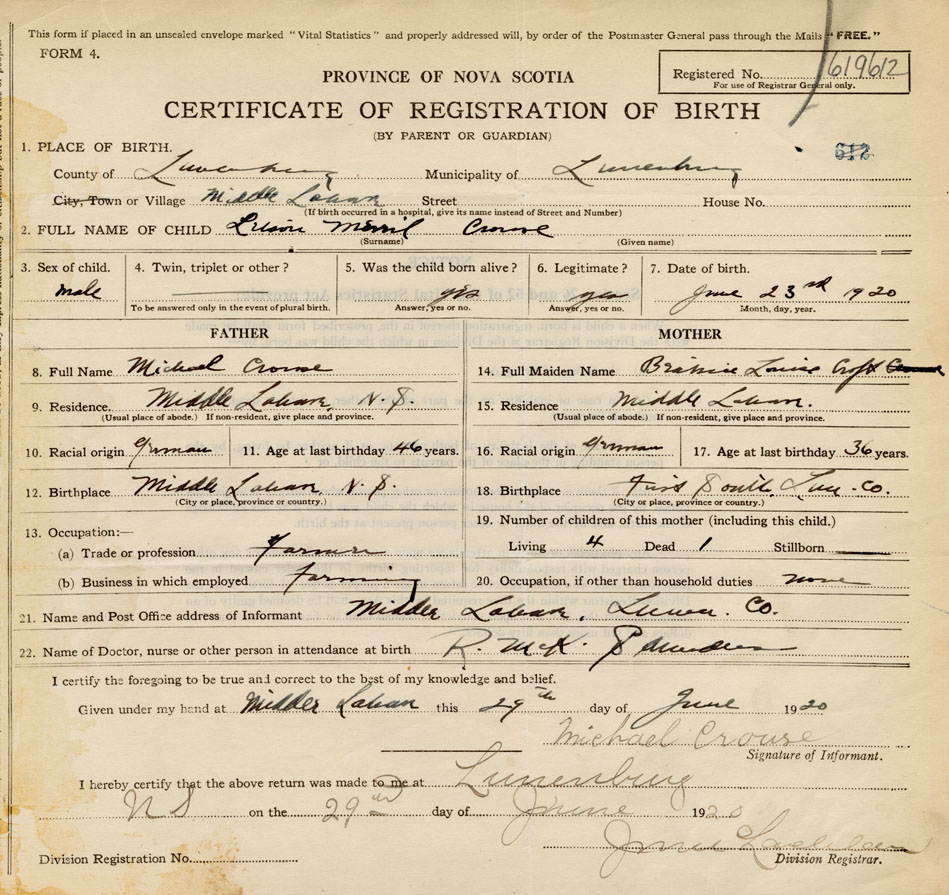 This form if placed in an unsealed envelope marked "Vital Statistics" and properly addressed will, by order of the Postmaster General pass through the Mails "FREE."
FORM 4.
Registered No. 619612
For use of Registrar General only.
PROVINCE OF NOVA SCOTIA
CERTIFICATE OF REGISTRATION OF BIRTH
(BY PARENT OR GUARDIAN)
612
1. PLACE OF BIRTH.
County of Lunenburg Municipality of Lunenburg
City, Town or Village Middle Lahave Street House No.
(If birth occurred in a hospital, give its name instead of Street and Number)
2. FULL NAME OF CHILD Merril Crouse
(Surname) (Given name)
3. Sex of child. 4. Twin, triplet or other? 5. Was the child born alive? 6. Legitimate? 7. Date of birth.
Male yes yes June 23rd 1920
To be answered only in the event of plural birth. Answer, yes or no. Answer, yes or no. Month, day, year.
FATHER MOTHER
8. Full Name Michael Crouse 14. Full Maiden Name Beatrice Louise Croft Crouse
9. Residence. Middle Lahave, N.S. 15. Residence Middle Lahave.
(Usual place of abode.) If non-resident, give place and province. (Usual place of abode.) If non-resident, give place and province.
10. Racial origin German 11. Age at last birthday 46 years. 16. Racial origin German 17. Age at last birthday 36 years.
12. Birthplace Middle Lahave, N.S. 18. Birthplace First South, Lun. Co.
(City or place, province or country.) (City or place, province or country.)
13. Occupation:— 19. Number of children of this mother (including this child.)
(a) Trade or profession Farmer Living 4 Dead 1 Stillborn
(b) Business in which employed farming 20. Occupation, if other than household duties none
21. Name and Post Office address of Informant Middle Lahave, Lunen. Co.
22. Name of Doctor, nurse or other person in attendance at birth R. McK. Saunders
I certify the foregoing to be true and correct to the best of my knowledge and belief.
Given under my hand at Middle Lahave this 29th day of June 1920
Michael Crouse
Signature of Informant.
I hereby certify that the above return was made to me at Lunenburg
NS on the 29th day of June 1920
Division Registration No. Division Registrar.